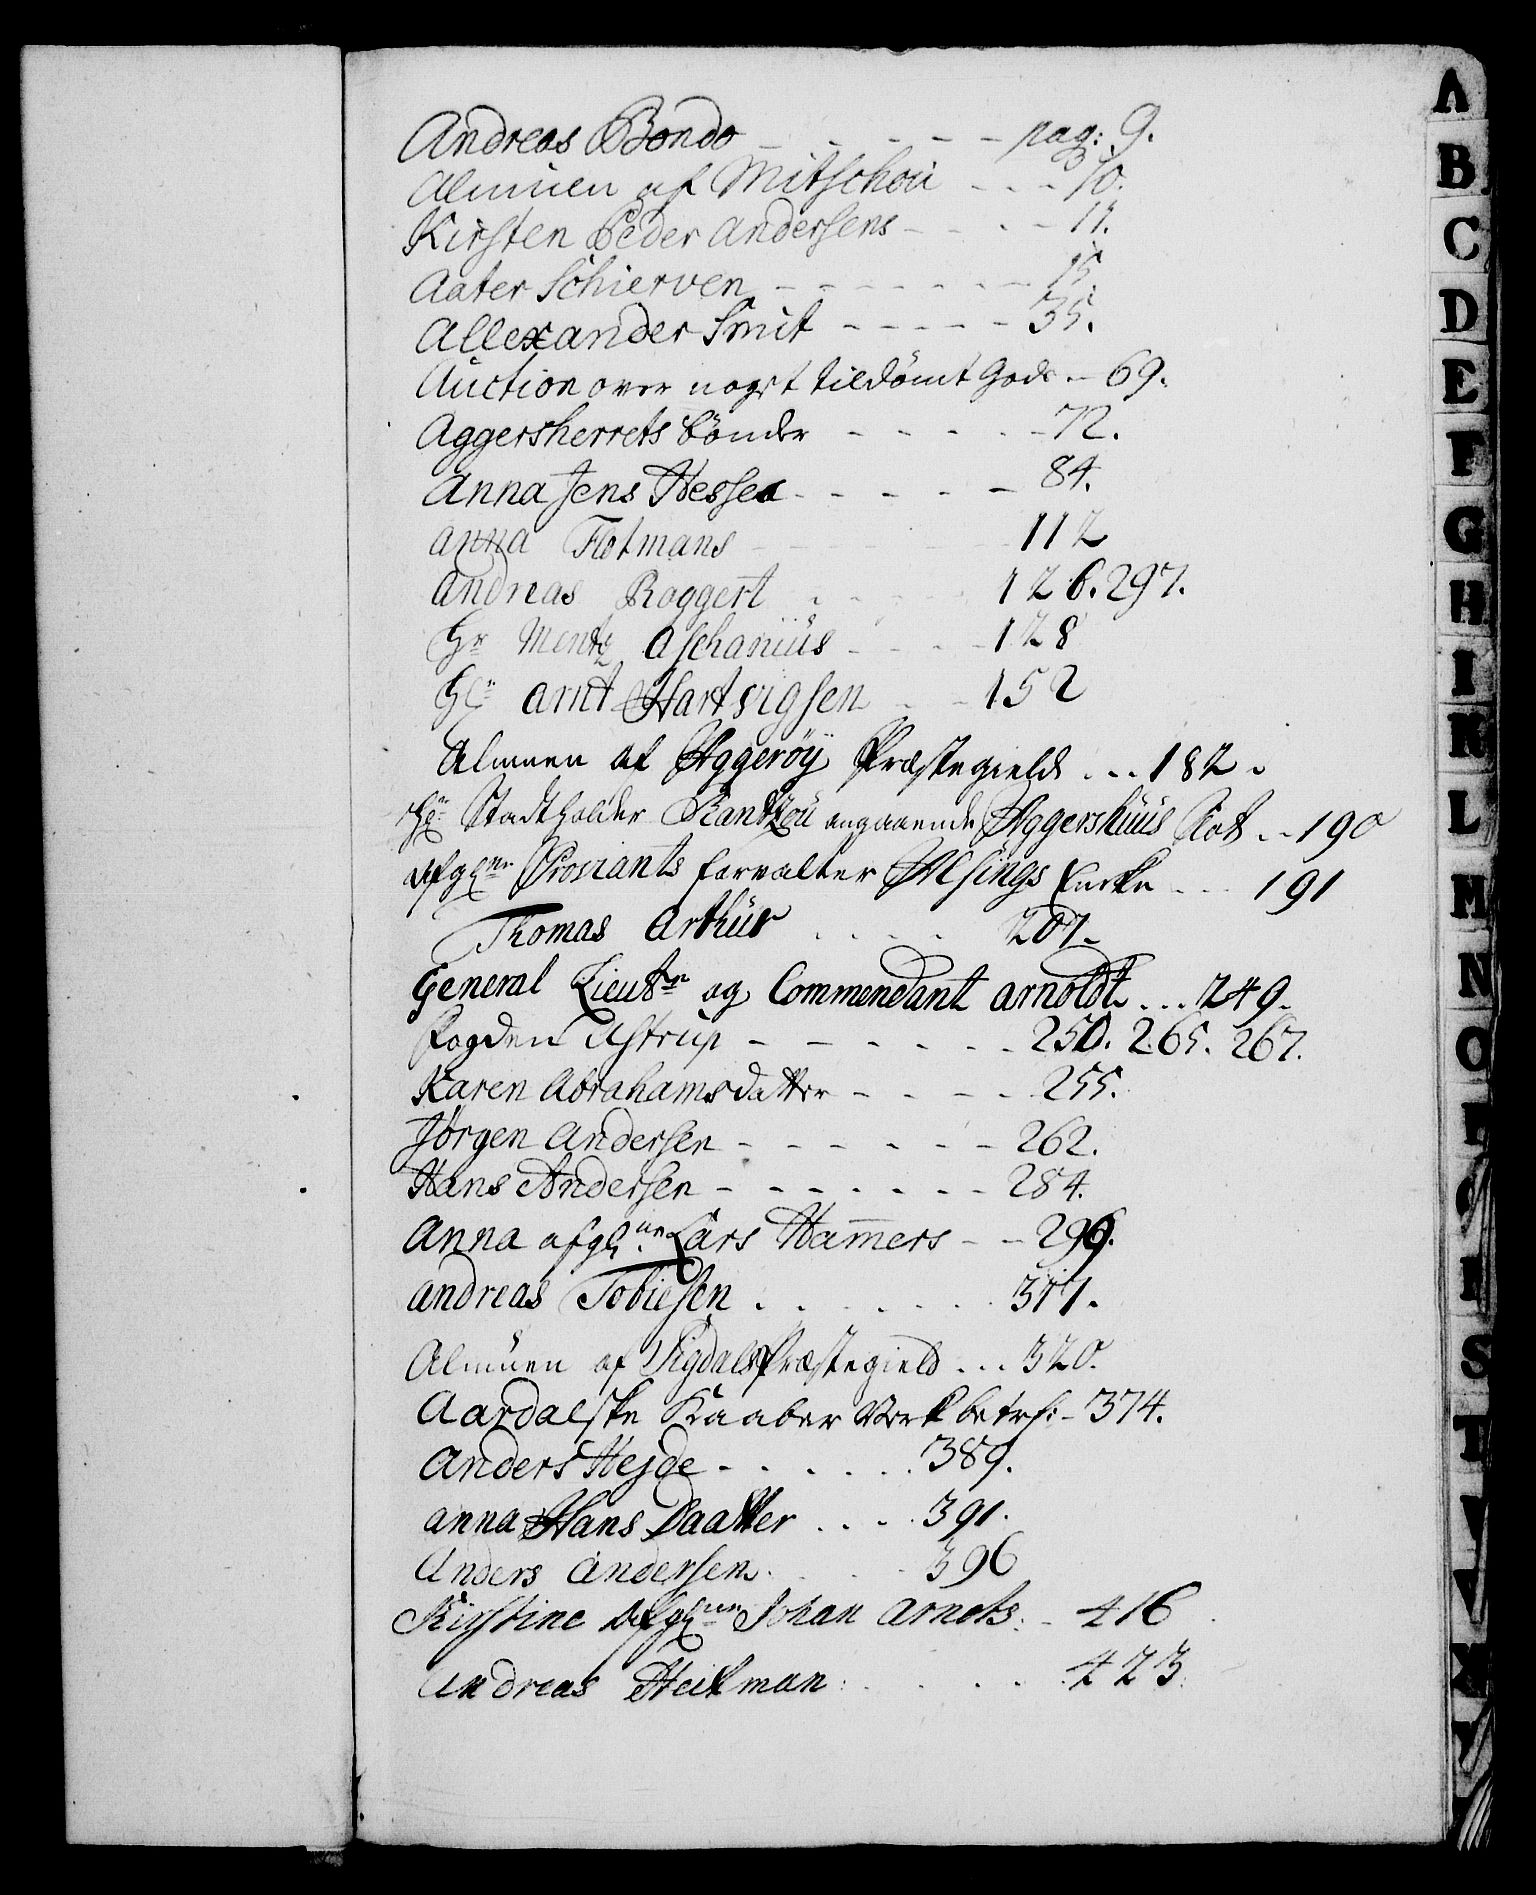 Andreas Bondo - - - - - pag: 9.
Almuen af Mitschou - - - 10.
Kirsten Peder Andersens - - - - 11.
Aater Schierven - - - - - - - 15.
Allexander Smit - - - - - 35.
Auction over noget tildömt Gods - 69.
Aggersherrets bönder - - - - - 72.
Anna Jens Hessea - - - - - 84.
Anna Flotmans - - - - - 112
Andreas Roggert - - - - - 126. 297.
Hr Mentz Aschanius - - - - 128
Hr Arnt Hartvigsen - - - 152
Almuen af Aggeröÿ Præstegield . . . 182.
Hr Stadtholder Rantzou angaaende Aggershuus Slot . . 190
Afgl: Proviants forvalter Alsings Encke . . . 191
Thomas Arthur . . . . 207.
General Lieutn og Commendant Arnoldt . . . 249.
Fogden Astrup - - - - - - 250. 265. 267.
Karen Abrahamsdatter - - - - - 255.
Jørgen Andersen - - - - - - 262.
Hans Andersen - - - - - - - 284.
Anna afgl: Lars Hamers - - 296.
Andreas Tobiesen . . . . . . 317.
Almuen af Sigdals Præstegield . . . 320.
Aardalske Kaaber Verk betrf: - 374.
Anders Hejde - . . . . . 389.
Anna Hans Daatter . . . . 391.
Anders Andersen . . . . 396
Kirstine Afgl: Johan Arnets: - 416
Andreas Heitman : . . . . . 423.
A
B
C
D
E
F
G
H
I
K
L
M
N
O
P
Q
R
S
T
V
X
Y